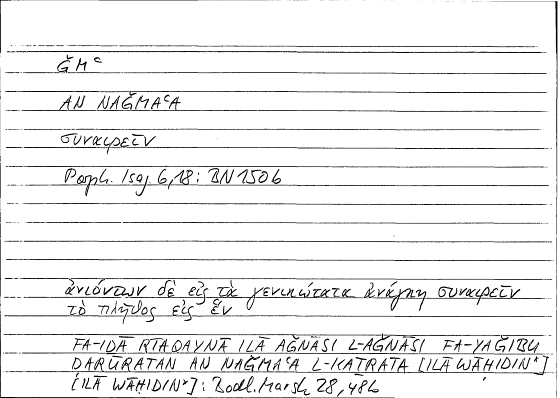 ǦMʿ
AN NAǦMAʿA
συναιρεῖν
Porph. Isag. 6,18: BN 1506
ἀνιόντων δὲ εἰς τὰ γενικώτατα ἀνάγκη συναιρεῖν
τὸ πλῆθος εἰς ἕν
FA-IDĀ RTAQAYNĀ ILĀ AǦNĀSI L-AǦNĀSI FA-YAǦIBU
DARŪRATAN AN NAǦMAʿA L-KATRATA [ILĀ WĀHIDIN*]
[ILĀ WĀHIDIN*]: Bodl. Marsh 28, 48b